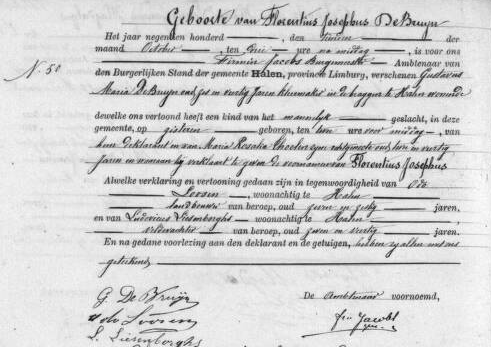 Geboorte van Florentius Josephus De Bruyn
Het jaar negentien honderd, den tienden der
maand October, ten drie ure na middag, is voor ons
Firmin Jacobs Burgemeester Ambtenaar van
N. 50
den Burgerlijken Stand der gemeente Halen, provincie Limburg, verschenen Gustavus
Maria De Bruyn oud zes en veertig Jaren in de Halen wonende
dewelke ons vertoond heeft een kind van het mannelijk geslacht, in deze
gemeente, op gisteren geboren, ten twee ure voor middag, van
hem deklarant en van Maria Rosalia zijne echtgenote oud twee en veertig
Jaren en waaraan hij verklaart te geven de voornamen van Florentius Josephus
Alwelke verklaring en vertooning gedaan zijn in tegenwoordigheid van Odo
Loosen, woonachtig te Halen
landbouwer van beroep, oud zeven en zestig jaren,
en van Ludovicus Liesenborghs woonachtig te Halen
veldwachter van beroep, oud zeven en veertig jaren.
En na gedane voorlezing aan den deklarant en de getuigen, hebben zij allen met ons
geteekend
G. De Bruyn
De Ambtenaar voornoemd,
Odo Loosen
Fir Jacobs
L. Liesenborghs